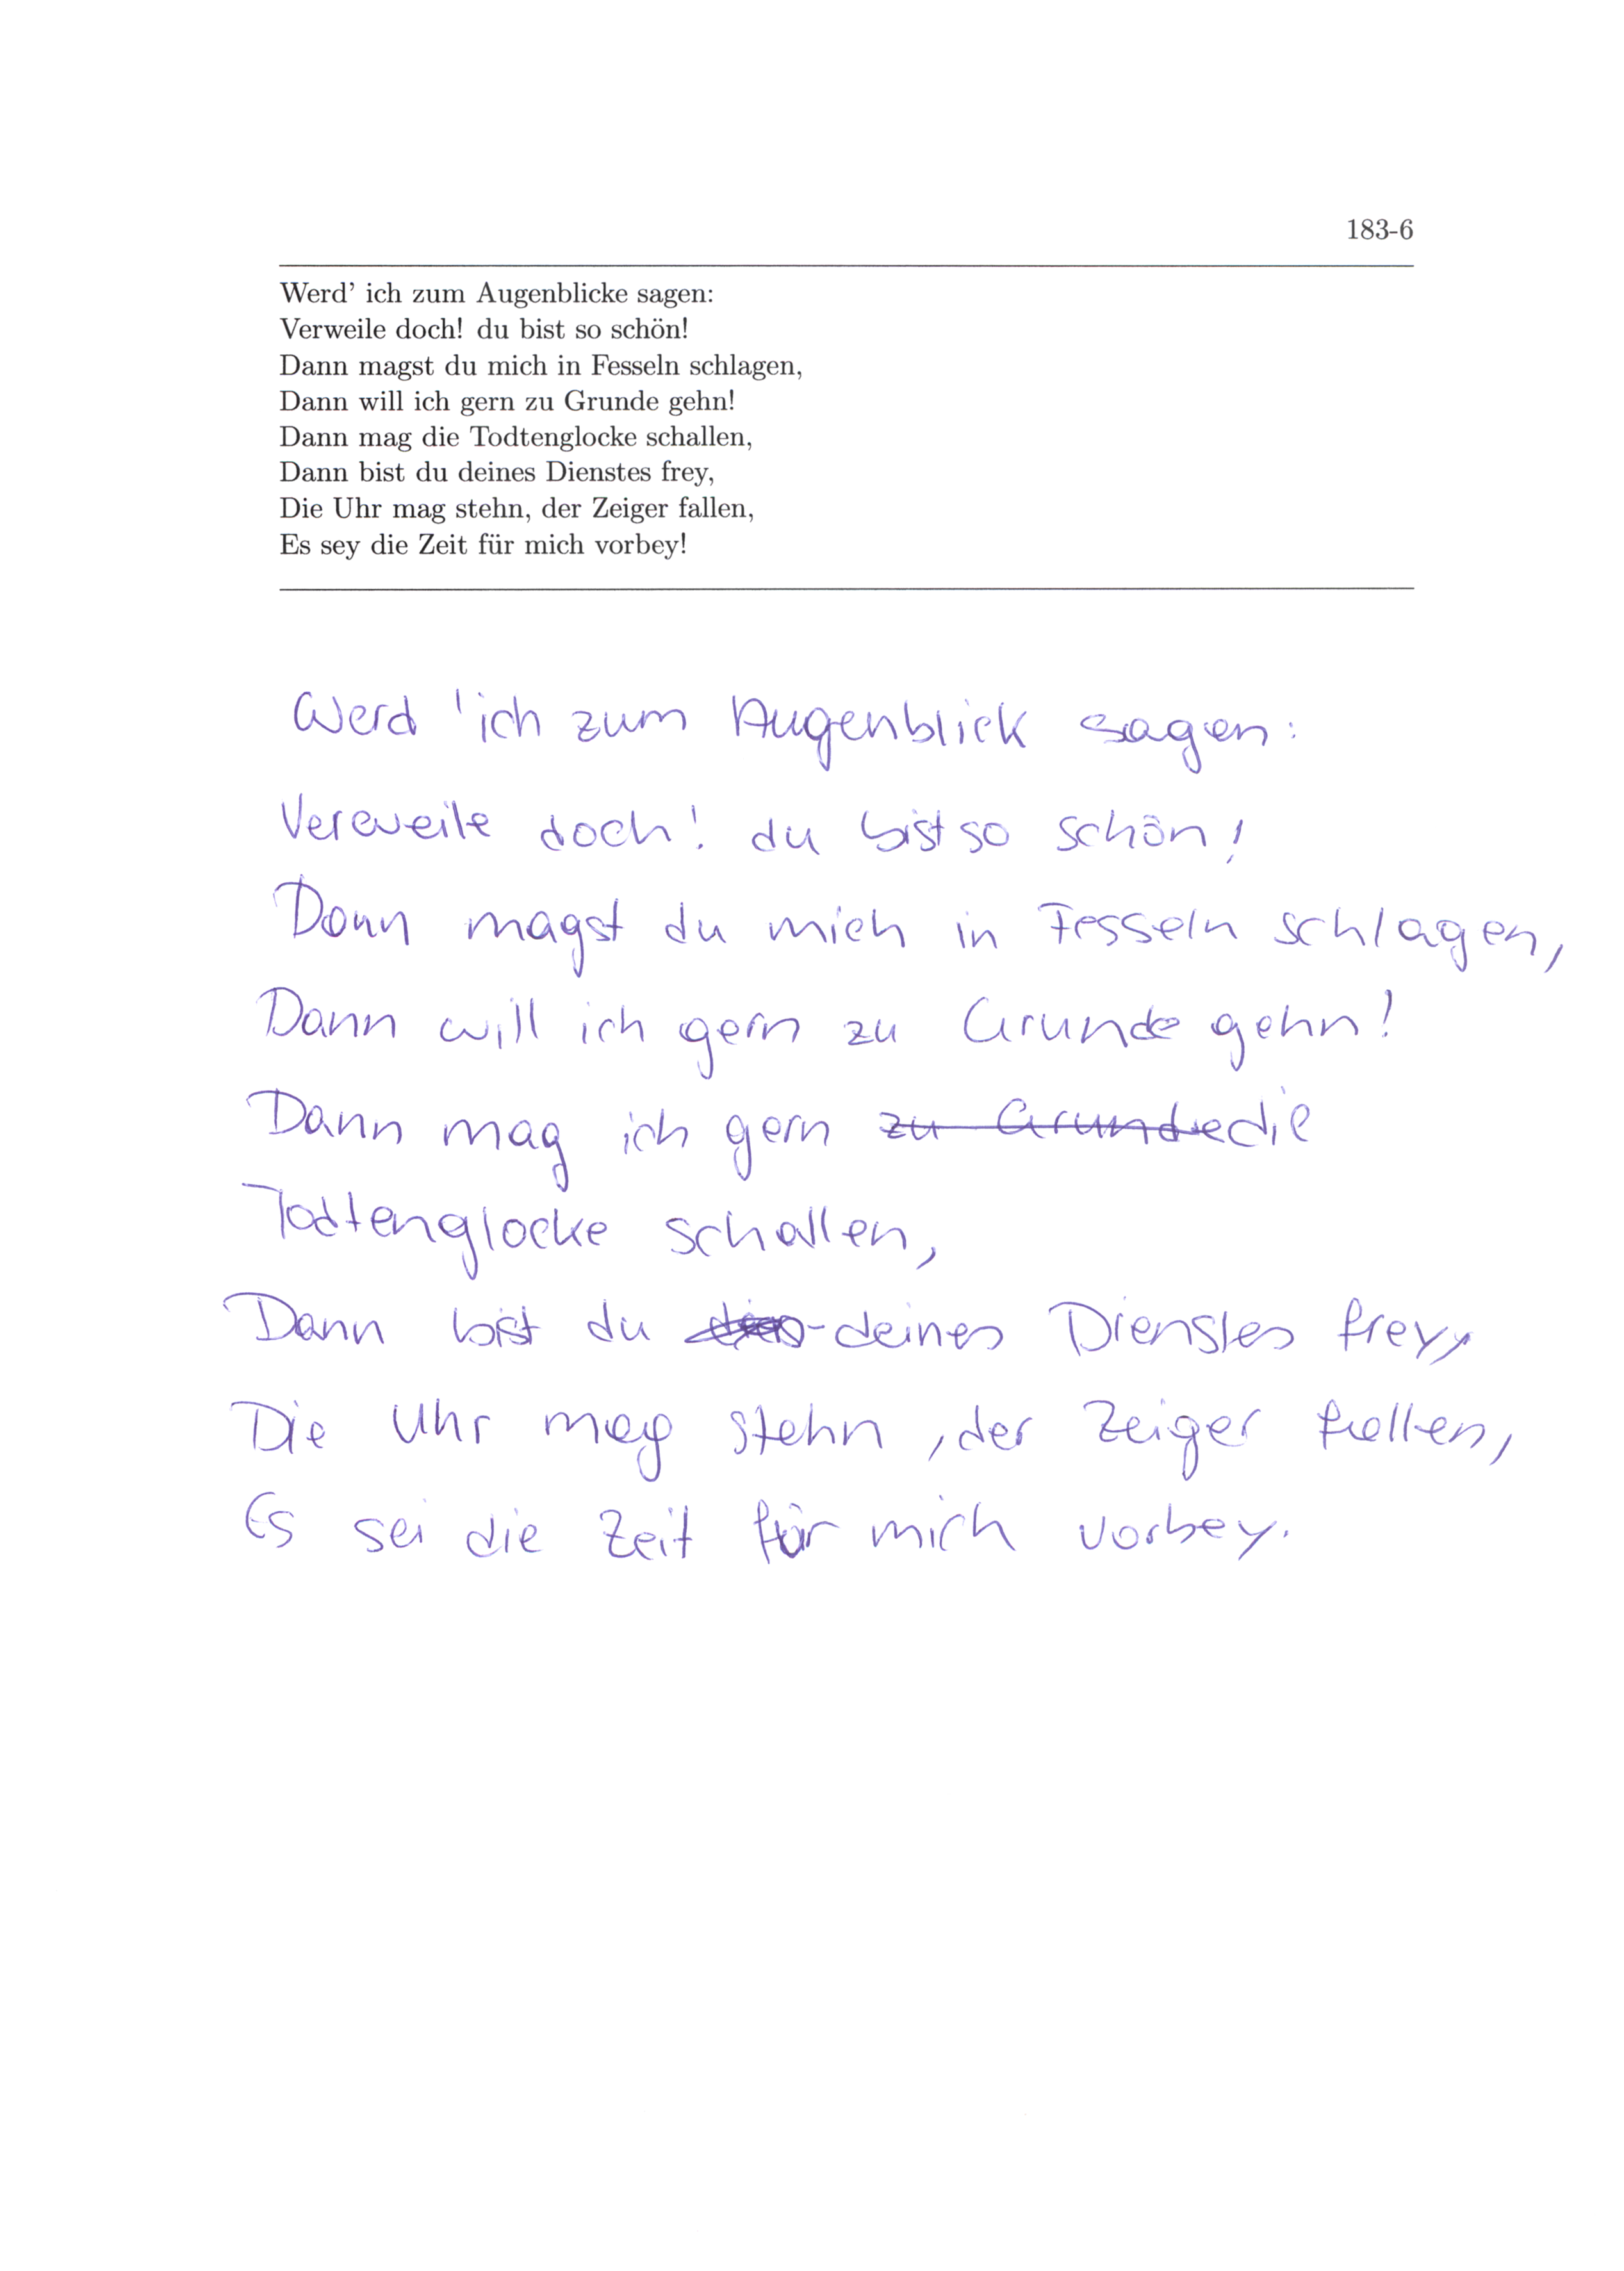 183-6
Werd' ich zum Augenblicke sagen:
Verweile doch! du bist so schön!
Dann magst du mich in Fesseln schlagen,
Dann will ich gern zu Grunde gehn!
Dann mag die Todtenglocke schallen,
Dann bist du deines Dienstes frey,
Die Uhr mag stehn, der Zeiger fallen,
Es sey die Zeit für mich vorbey!
Werd 'ich zum Augenblick sagen:
Verweile doch! du bist so schön!
Dann magst du mich in Fesseln schlagen,
Dann will ich gern zu Grunde gehn!
Dann mag ich gern zu Grunde die
Todtenglocke schallen,
Dann bist du deines Dienstes frey,
Die Uhr mag stehn, der Zeiger fallen,
Es sei die Zeit für mich vorbey.